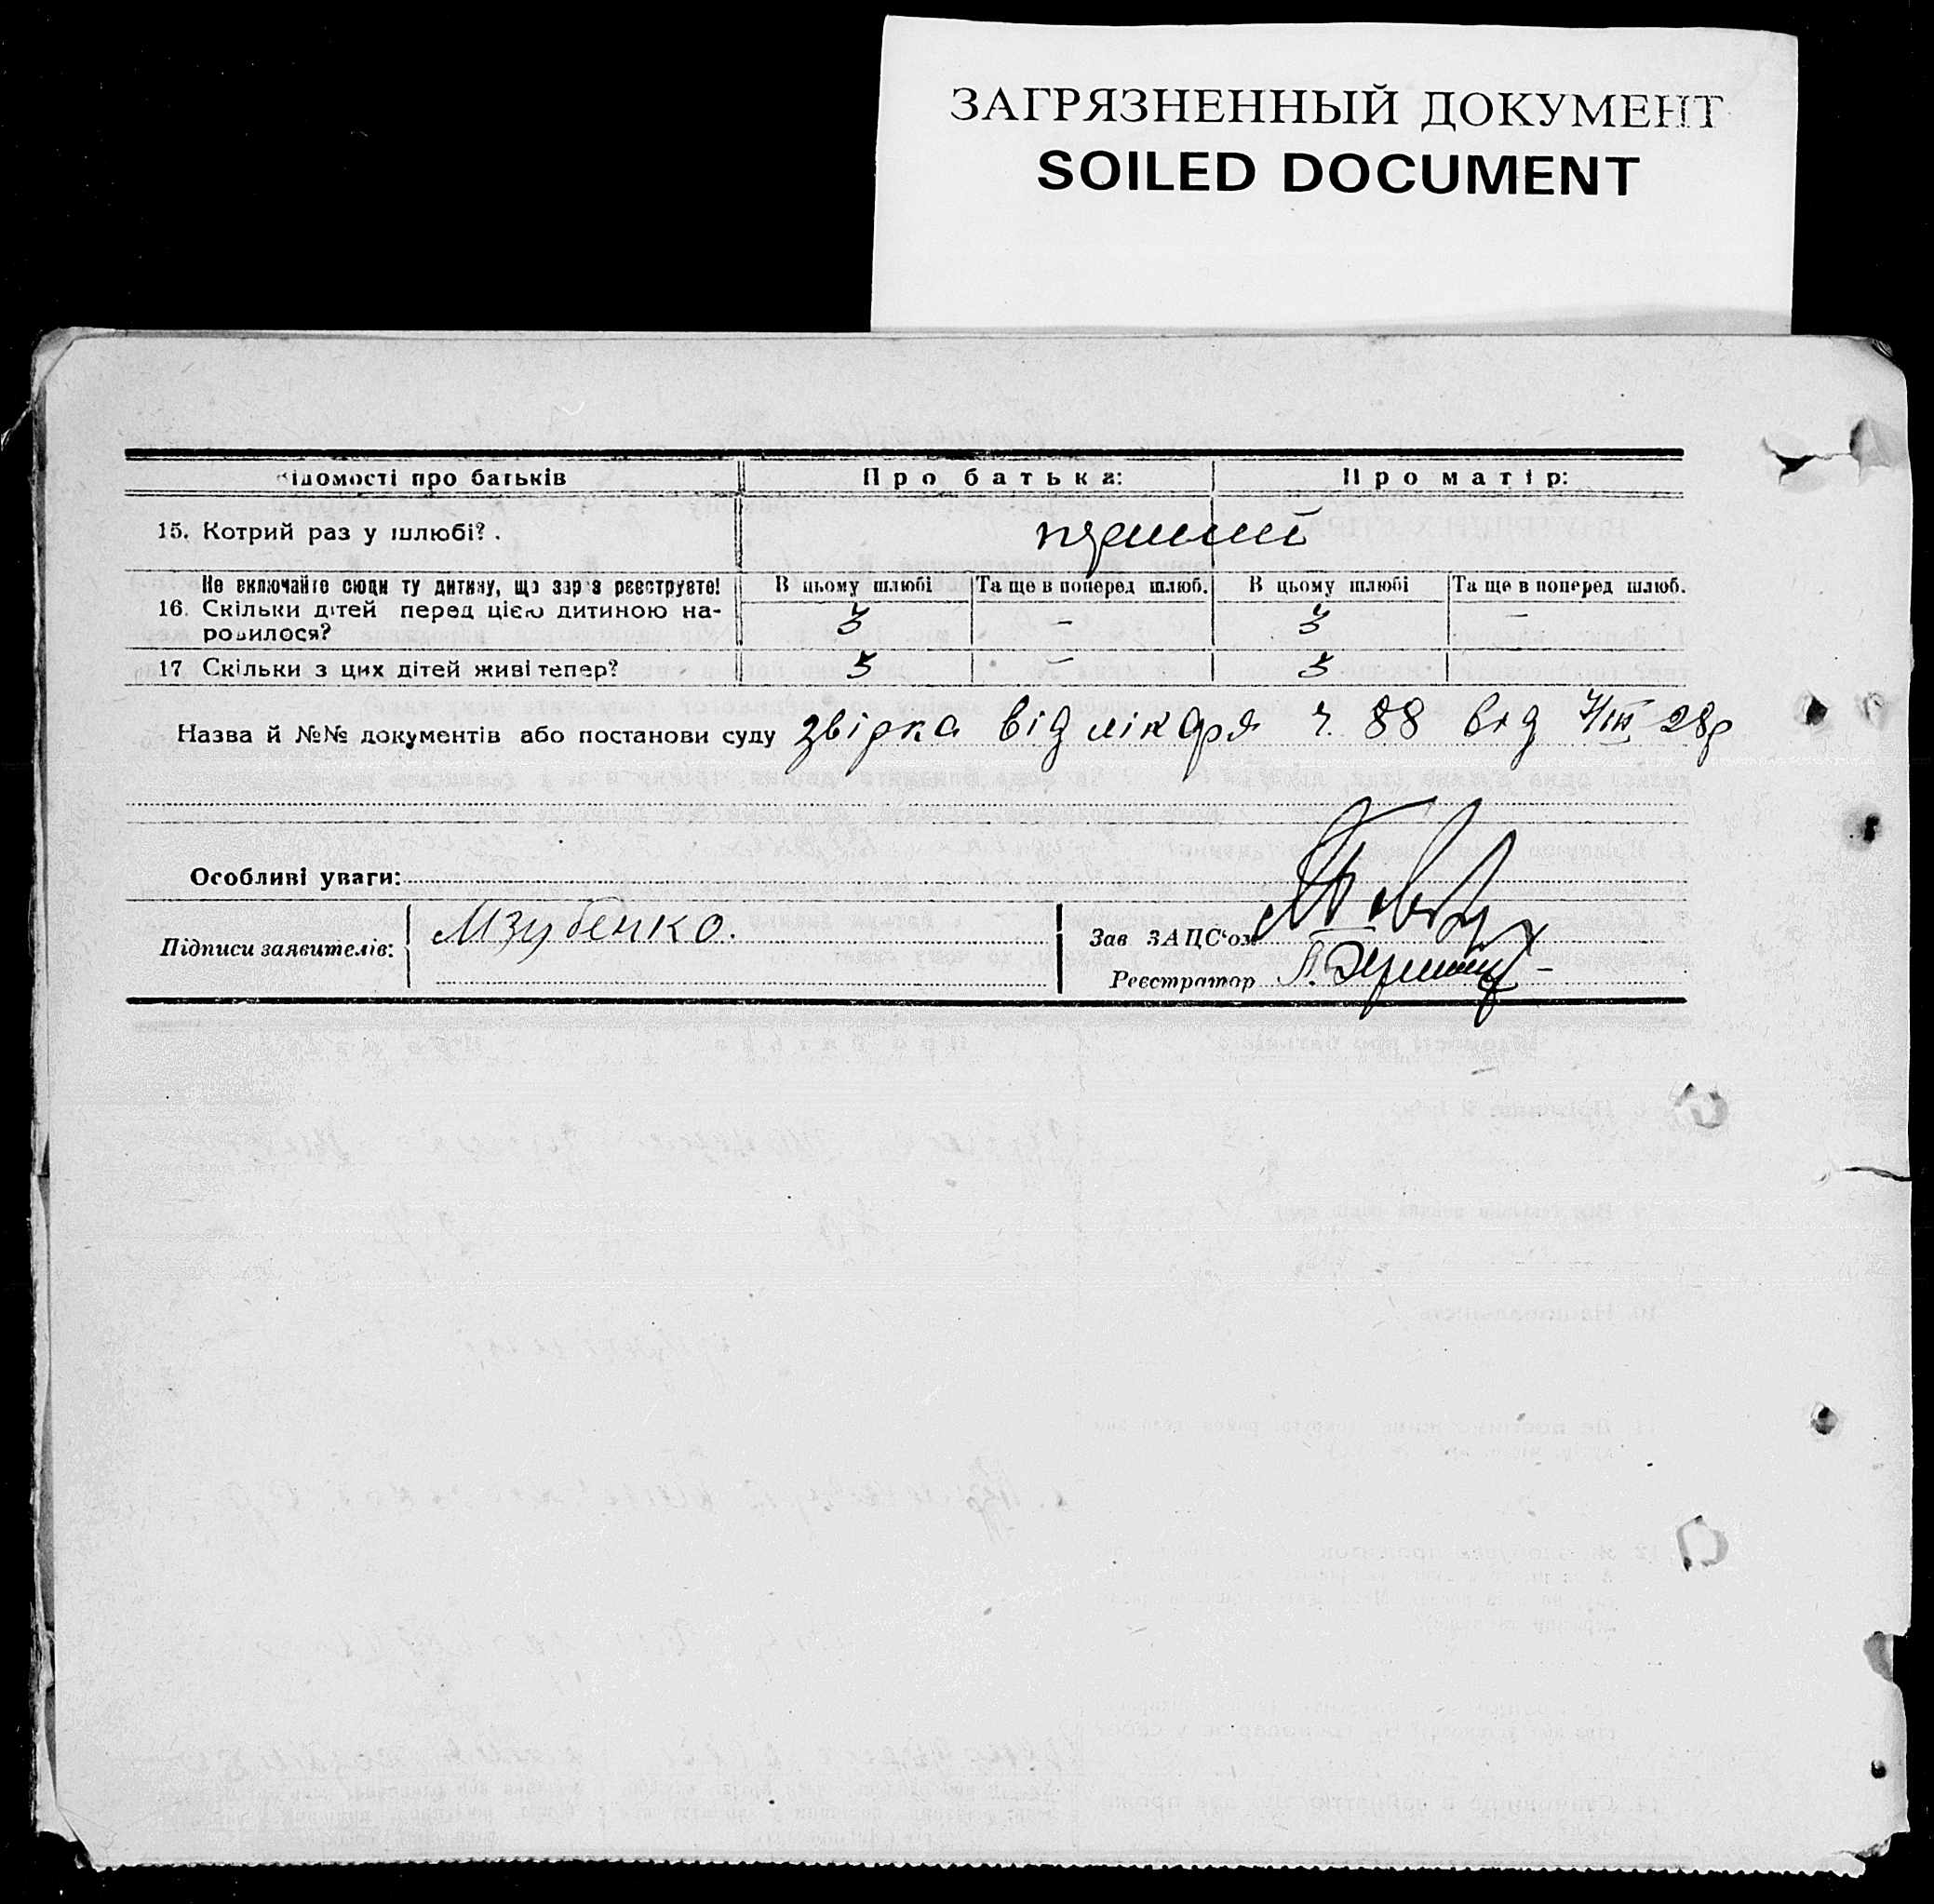 ЗАГРЯЗНЕННЫЙ ДОКУМЕНТ
SOILED DOCUMENT
ідомості про батьків Про батька: Про матір:
15. Котрий раз у шлюбі? . перший
Не включайте сюди ту дитину, що зараз реєструєте! В цьому шлюбі Та ще в поперед шлюб. В цьому шлюбі Та ще в поперед шлюб.
16. Скільки дітей перед цією дитиною на- 3 – 3 –
родилося?
17. Скільки з цих дітей живі тепер? 3 – 3
Назва й №№ документів або постанови суду звірка від лікаря ч. 88 від 7/III 28р
Особливі уваги:
Підписи заявителів: МЗубенко.
Зав ЗАЦС'ом
Реєстратор